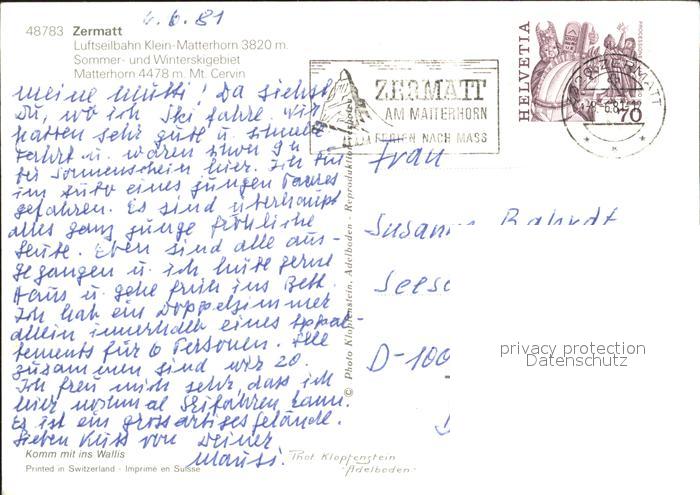 6.6.81
48783 Zermatt
Luftseilbahn Klein-Matterhorn 3820 m.
Sommer- und Winterskigebiet
Matterhorn 4478 m. Mt. Cervin
meine Mutti! Da siehst
Du, wo ich Ski fahre. Wir
hatten sehr gute u.
Fahrt u. waren schon
bei Sonnenschein hier. Ich bin
im Auto eines jungen Paares
gefahren. Es sind überhaupt
alles ganz junge fröhliche
Leute. Eben sind alle aus-
gegangen u. ich hüte gerne
Haus u. gehe früh ins Bett.
Ich hab ein Doppelzimmer
allein innerhalb eines Appar-
tements für 6 Personen. Alle
zusammen sind wir 20.
Ich freu mich sehr, dass ich
hier nochmal Skifahren kann.
Es ist ein grossartiges Gelände.
Lieben Kuss von Deiner
Mausi.
Komm mit ins Wallis
Printed in Switzerland - Imprimé en Suisse
© Photo Klopfenstein, Adelboden - Reproduktion
Phot Klopfenstein
"Adelboden"
ZERMATT
AM MATTERHORN
FERIEN NACH MASS
HELVETIA
70
ZERMATT
Frau
Susan
Seesc
D-100
privacy protection
Datenschutz